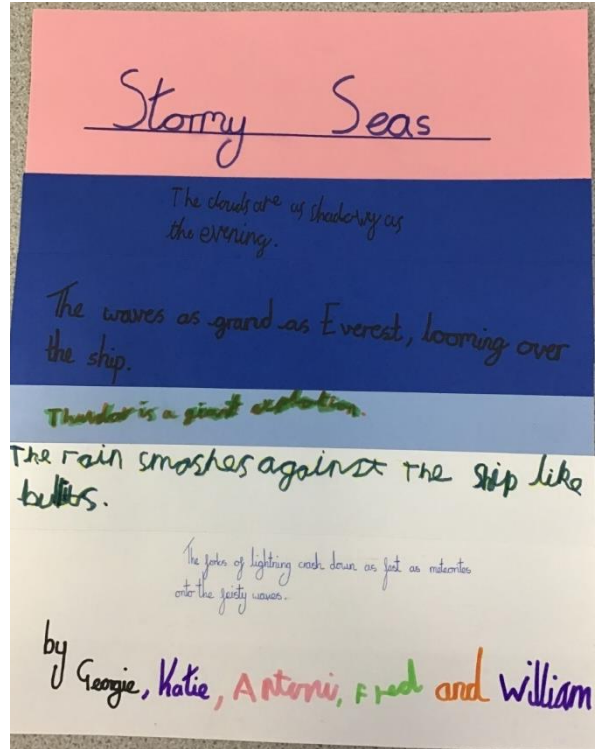 Stormy Seas
The clouds are as shadowy as
the evening.
The waves as grand as Everest, looming over
the ship.
Thunder is a giant explosion.
The rain smashes against the ship like
bullits.
The forks of lightning crash down as fast as meteorites
onto the feisty waves.
by Georgie, Katie, Antoni, Fred and William